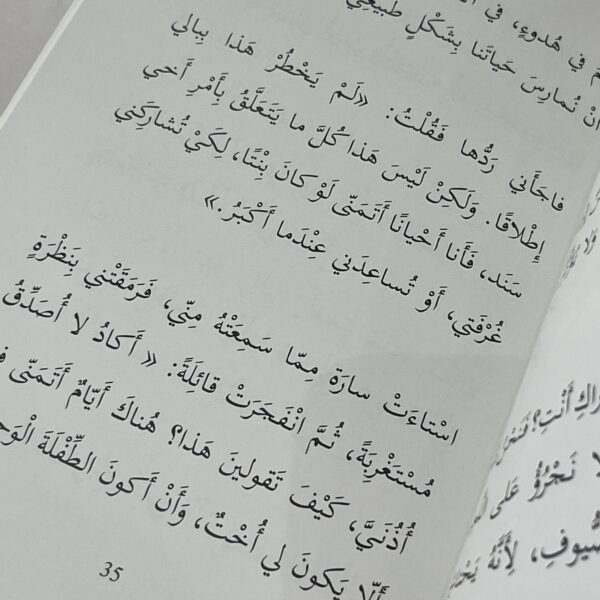 في هُدوءٍ، في
أنْ نُمارِسَ حَياتَنا بِشَكْلٍ طَبيعِيٍّ
فاجَأَني رَدُّها فَقُلْتُ: «لَمْ يَخْطُرْ هَذا بِبالي
إِطْلاقًا. وَلَكِنْ لَيْسَ هَذا كُلَّ ما يَتَعَلَّقُ بِأَمْرِ أَخي
سَنَد، فَأَنا أَحْيانًا أَتَمَنّى لَوْ كانَ بِنْتًا، لِكَيْ تُشارِكَني
غُرْفَتي، أَوْ تُساعِدَني عِنْدَما أَكْبَرُ.»
اسْتاءَتْ سارَة مِمّا سَمِعَتْهُ مِنّي، فَرَمَقَتْني بِنَظْرَةٍ
مُسْتَغْرِبَةً، ثُمَّ انْفَجَرَتْ قائِلَةً: «أَكادُ لا أُصَدِّقُ
أُذُنَيَّ، كَيْفَ تَقولينَ هَذا؟ هُناكَ أَيّامٌ أَتَمَنّى
أَلّا يَكونَ لي أُخْتٌ، وَأَنْ أَكونَ الطِّفْلَةَ
35
أَنْتِ؟
لا تَجْرُؤُ عَلى
لِأَنَّهُ